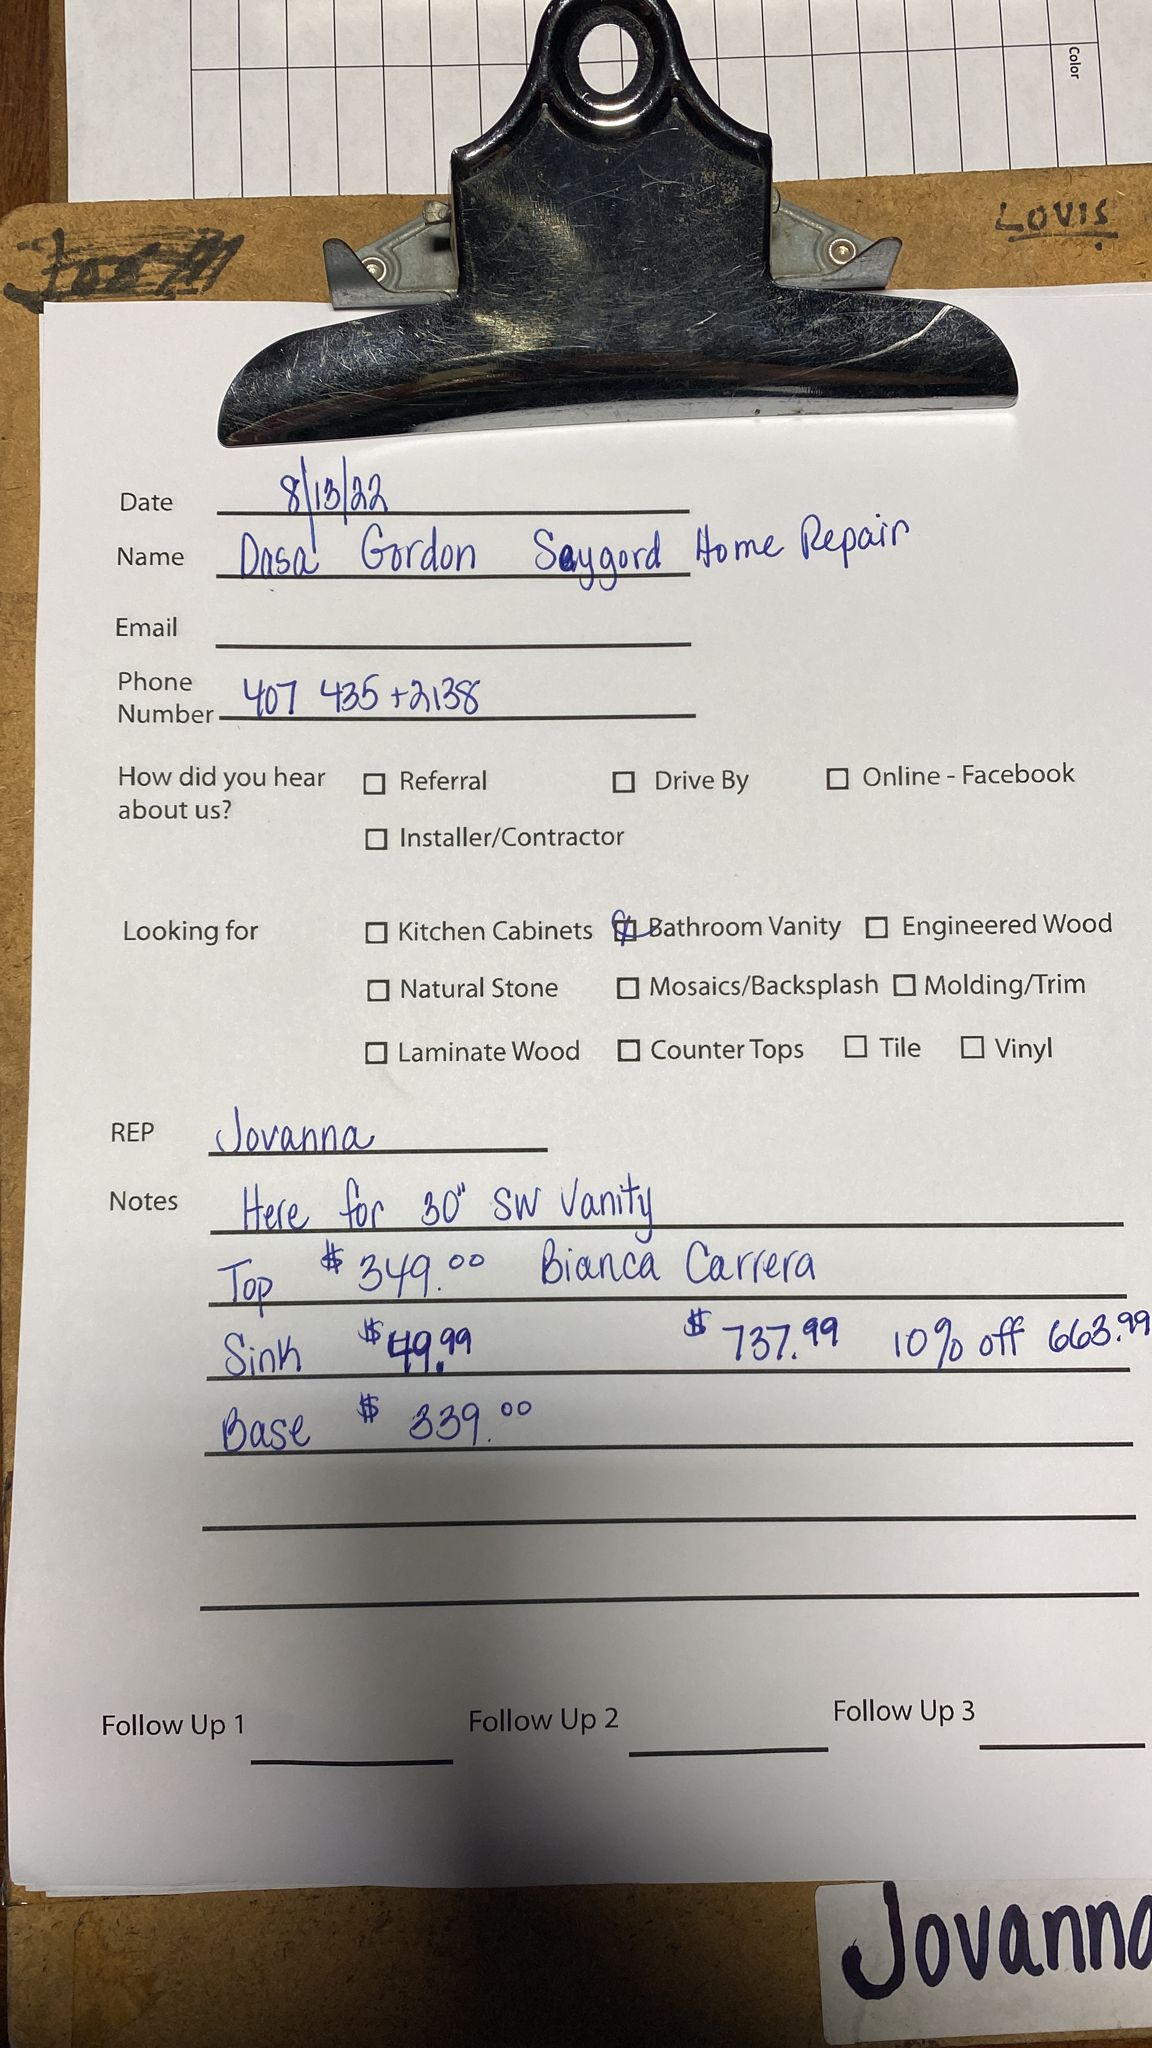 Color
LOVIS
Date 8/13/22
Name Dasa Gordon Saygord Home Repair
Email
Phone
Number 407 435 +2138
How did you hear
about us?
Referral Drive By Online - Facebook
Installer/Contractor
Looking for Kitchen Cabinets Bathroom Vanity Engineered Wood
Natural Stone Mosaics/Backsplash Molding/Trim
Laminate Wood Counter Tops Tile Vinyl
REP Jovanna
Notes Here for 30" SW Vanity
Top $ 349.00 Bianca Carrera
Sink $ 49.99 $ 737.99 10% off 663.99
Base $ 339.00
Follow Up 1 Follow Up 2 Follow Up 3
Jovanna